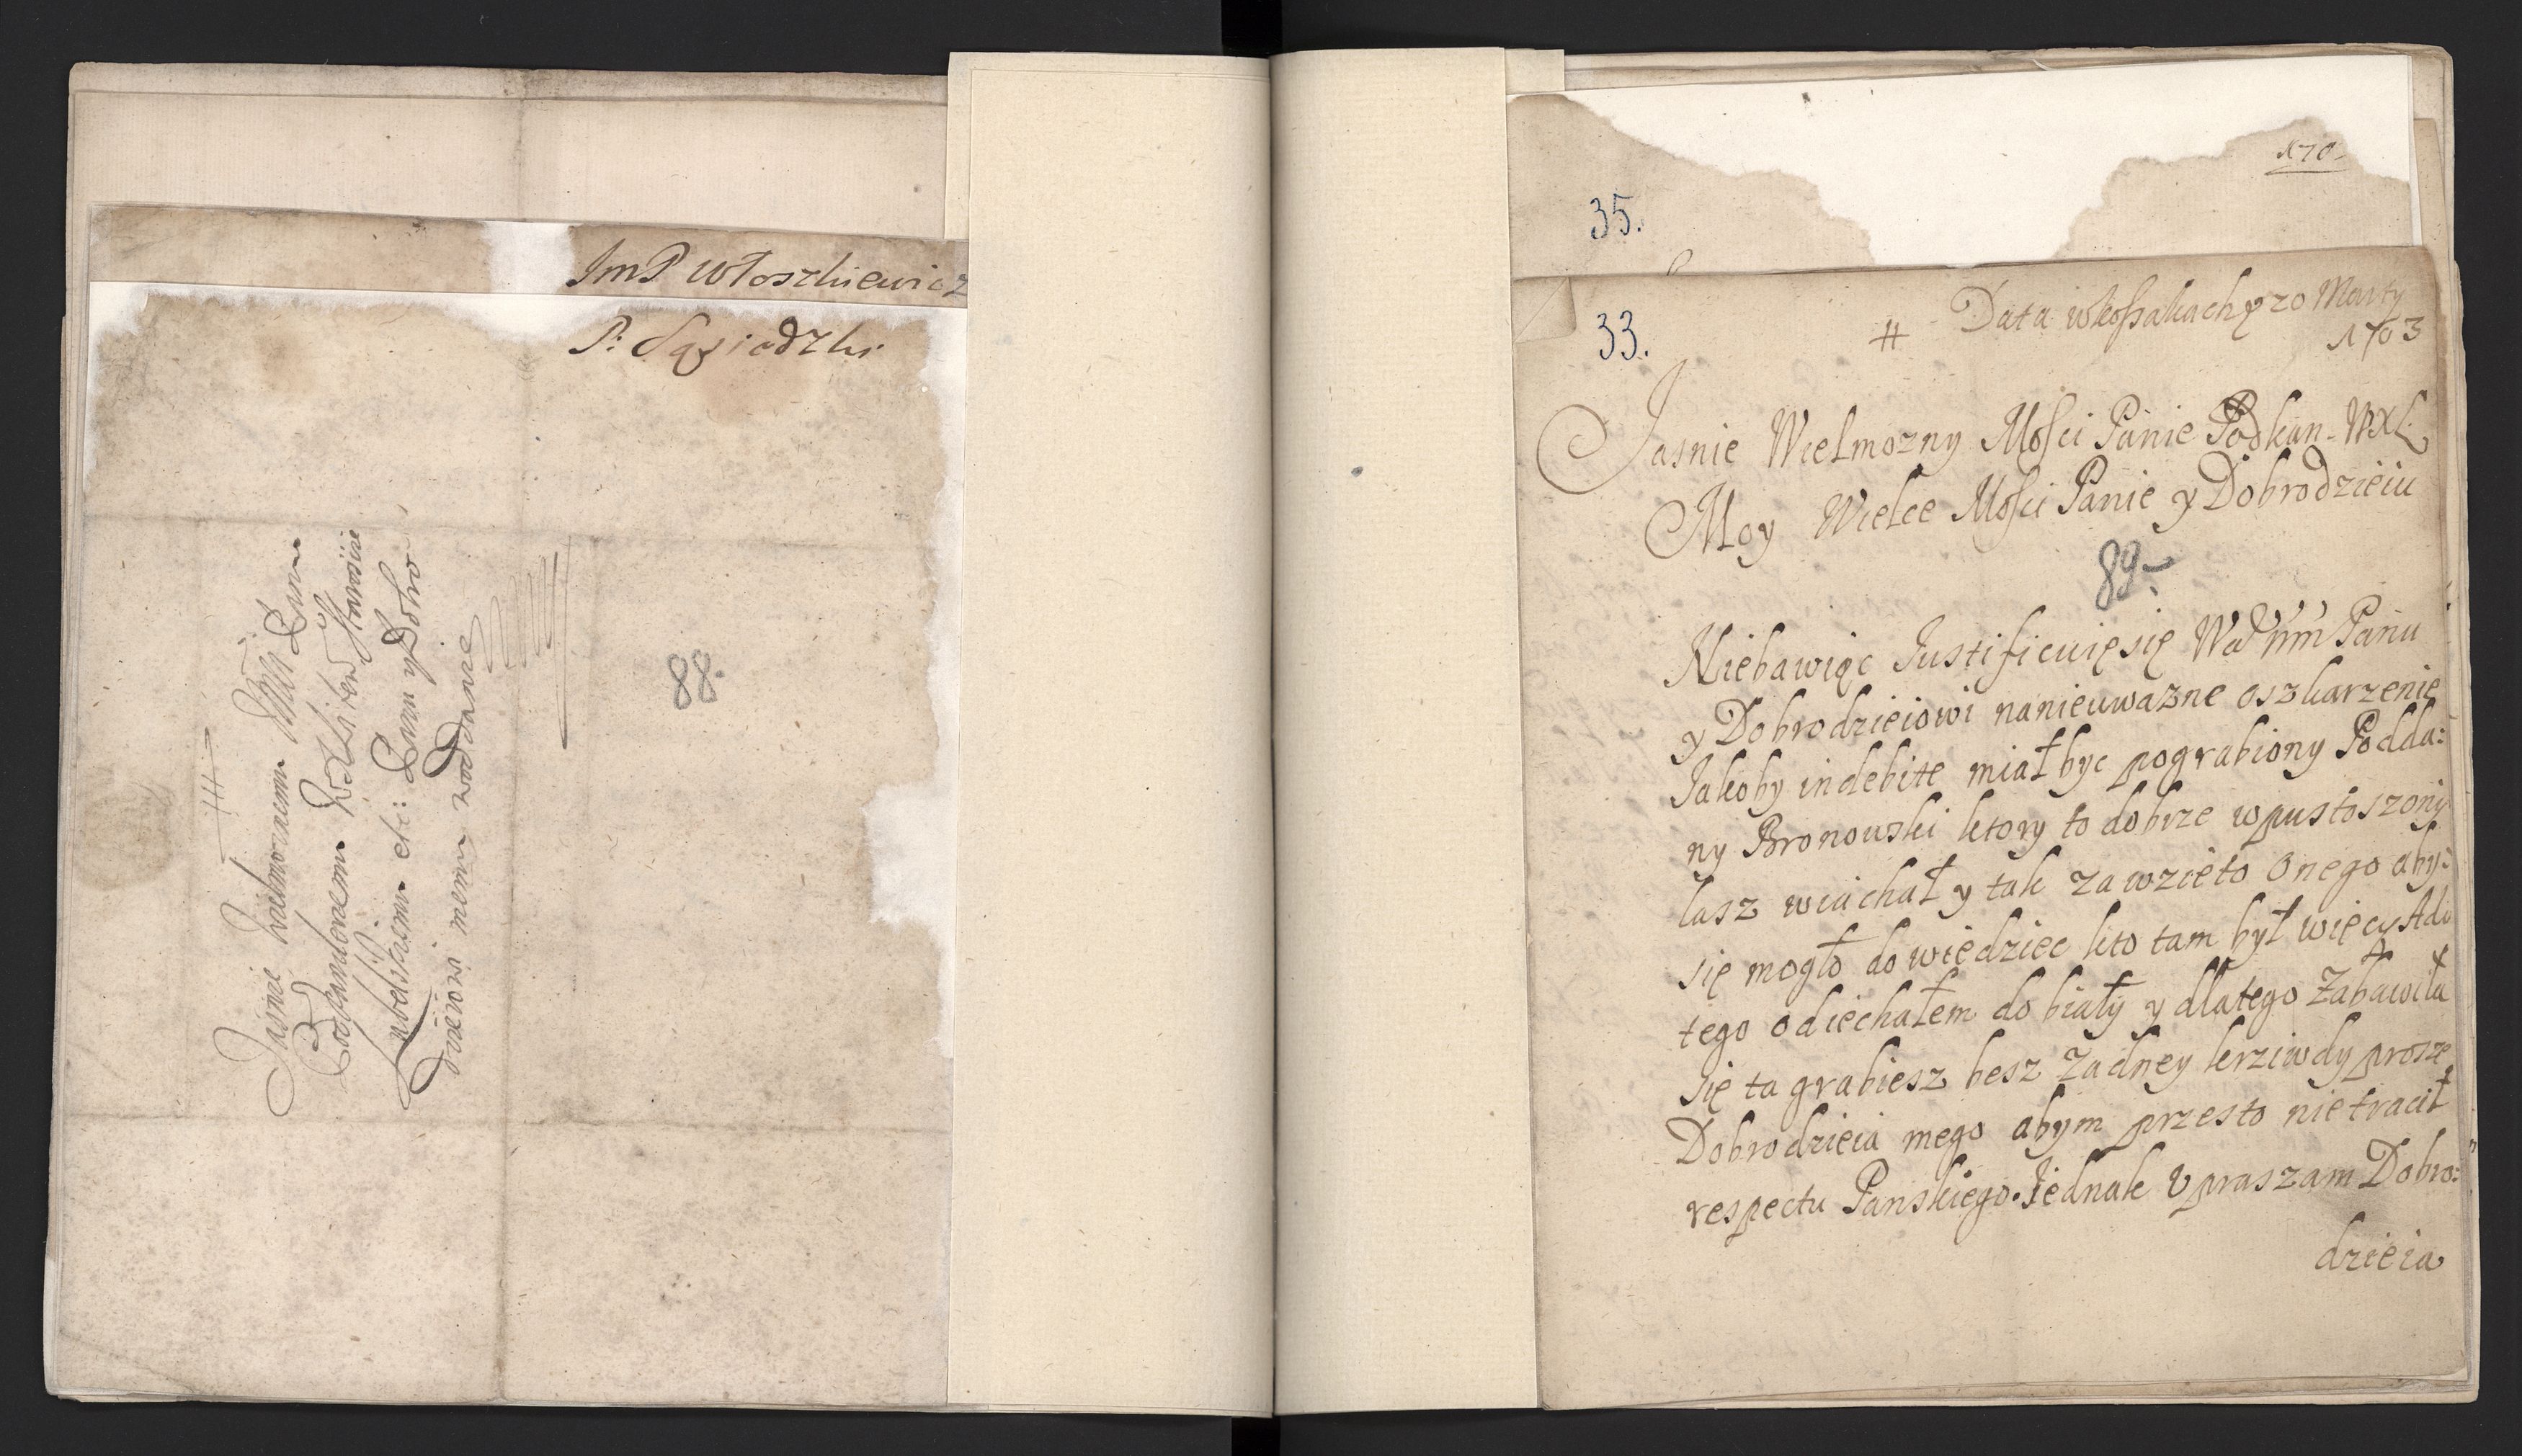 ImP Włoszkiewicz
P: Sąsiadzki
Jasnie Wielmoznemu Msci Panu
Podkanclerzemu WXLitew Staroscie
Lubelskiemu etc: Panu y Dobro
dzieiowi memu
88.
170
35.
33.
Data w Kossakach 20 Marty
1703
Jasnie Wielmozny Mosci Panie Podkan. WXL
Moy Wielce Mosci Panie y Dobrodzieiu
89.
Niebawiąc Justificuię się Panu
y Dobrodzieiowi nanieuwazne oszkarzenie
Jakoby indebite miał byc pograbiony Podda:
ny Bronowski ktory to dobrze wpustoszony
lasz wiachał y tak zawzieto onego aby:
się mogło dowiedziec kto tam był więcy Adla
tego odiechałem do biały y dlatego Zabawiła
się ta grabiesz besz Zadney krziwdy prosze
Dobrodzieia mego abym przesto nietracił
respectu Panskiego. Jednak Vpraszam Dobro:
dzieia